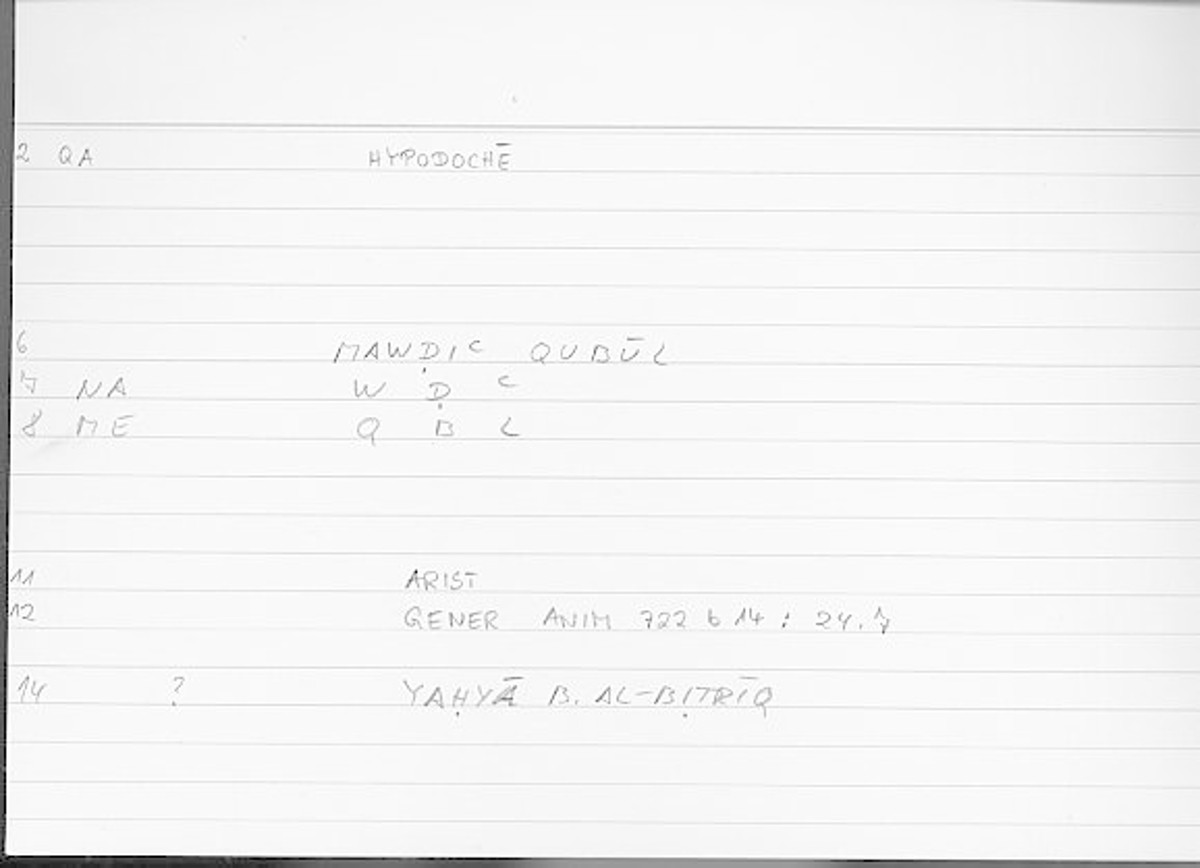 2 QA HYPODOCHĒ
6 MAWḌIC QUBŪL
7 NA W Ḍ C
8 ME Q B L
11 ARIST
12 GENER ANIM 722 b 14 : 24.7
14 ? YAḤYĀ B. AL-BIṬRĪQ